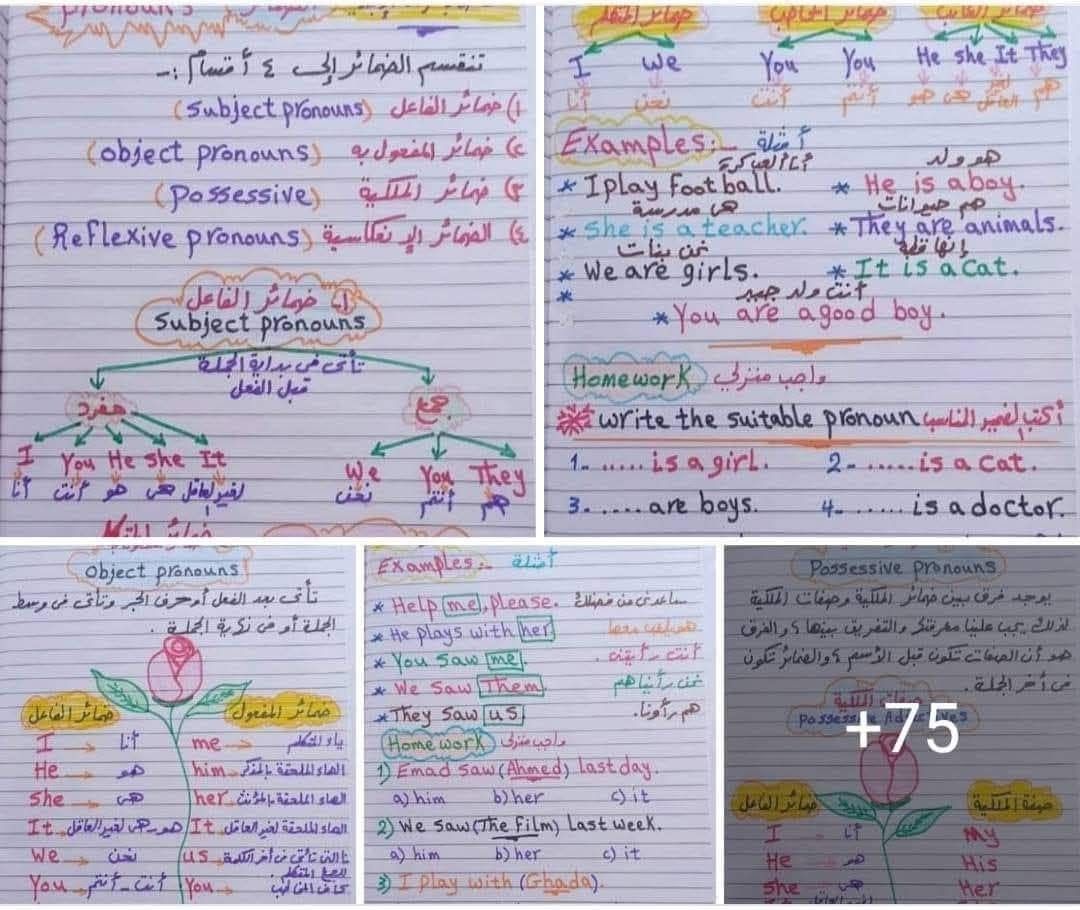 تنقسم الضمائر إلى ٤ أقسام :-
١) ضمائر الفاعل (Subject pronouns)
٢) ضمائر المفعول به (object pronouns)
٣) ضمائر الملكية (Possessive)
٤) الضمائر الإنعكاسية (Reflexive pronouns)
١) ضمائر الفاعل
Subject pronouns
تأتى فى بداية الجملة
قبل الفعل
مفرد جمع
I You He She It We You They
أنا أنت هو هى لغير العاقل نحن أنتم هم
ضمائر المتكلم ضمائر المخاطب ضمائر الغائب
I We You You He she It They
أنا نحن أنت أنتم هو هى لغير العاقل هم
Examples:- أمثلة
أنا ألعب كرة هو ولد
* I play football. * He is a boy.
هى مدرسة هم حيوانات
* She is a teacher. * They are animals.
نحن بنات إنها قطة
* We are girls. * It is a cat.
أنت ولد جيد
*
* You are a good boy.
Homework واجب منزلي
write the suitable pronoun أكتب الضمير المناسب
1- ..... is a girl. 2- ...... is a cat.
3- ..... are boys. 4- ...... is a doctor.
Object pronouns
تأتى بعد الفعل أو حرف الجر وتأتى فى وسط
الجملة أو فى نهاية الجملة .
ضمائر الفاعل ضمائر المفعول
I أنا me ياء المتكلم
He هو him الهاء الملحقة بالمذكر
She هى her الهاء الملحقة بالمؤنث
It هو-هى لغير العاقل It الهاء الملحقة لغير العاقل
We نحن us نا التى تأتى فى أخر الكلمة
You أنت-أنتم You كاف المخاطب
Examples:- أمثلة
* Help me, please. ساعدنى من فضلك
* He plays with her هو يلعب معها
* You saw me. أنت رأيتنى .
* We saw Them نحن رأيناهم
* They saw us هم رأونا .
Homework واجب منزلى
1) Emad saw (Ahmed) last day.
a) him b) her c) it
2) We saw (The film) last week.
a) him b) her c) it
3) I play with (Ghada).
Possessive pronouns
يوجد فرق بين ضمائر الملكية وصفات الملكية
لذلك يجب علينا معرفتك والتفريق بينها ؟ والفرق
هو أن الصفات تكون قبل الأسم ؟ والضمائر تكون
فى أخر الجملة .
صفات الملكية
Possessive Adjectives
+75
ضمائر الفاعل صفة الملكية
I أنا My
He هو His
She هى Her